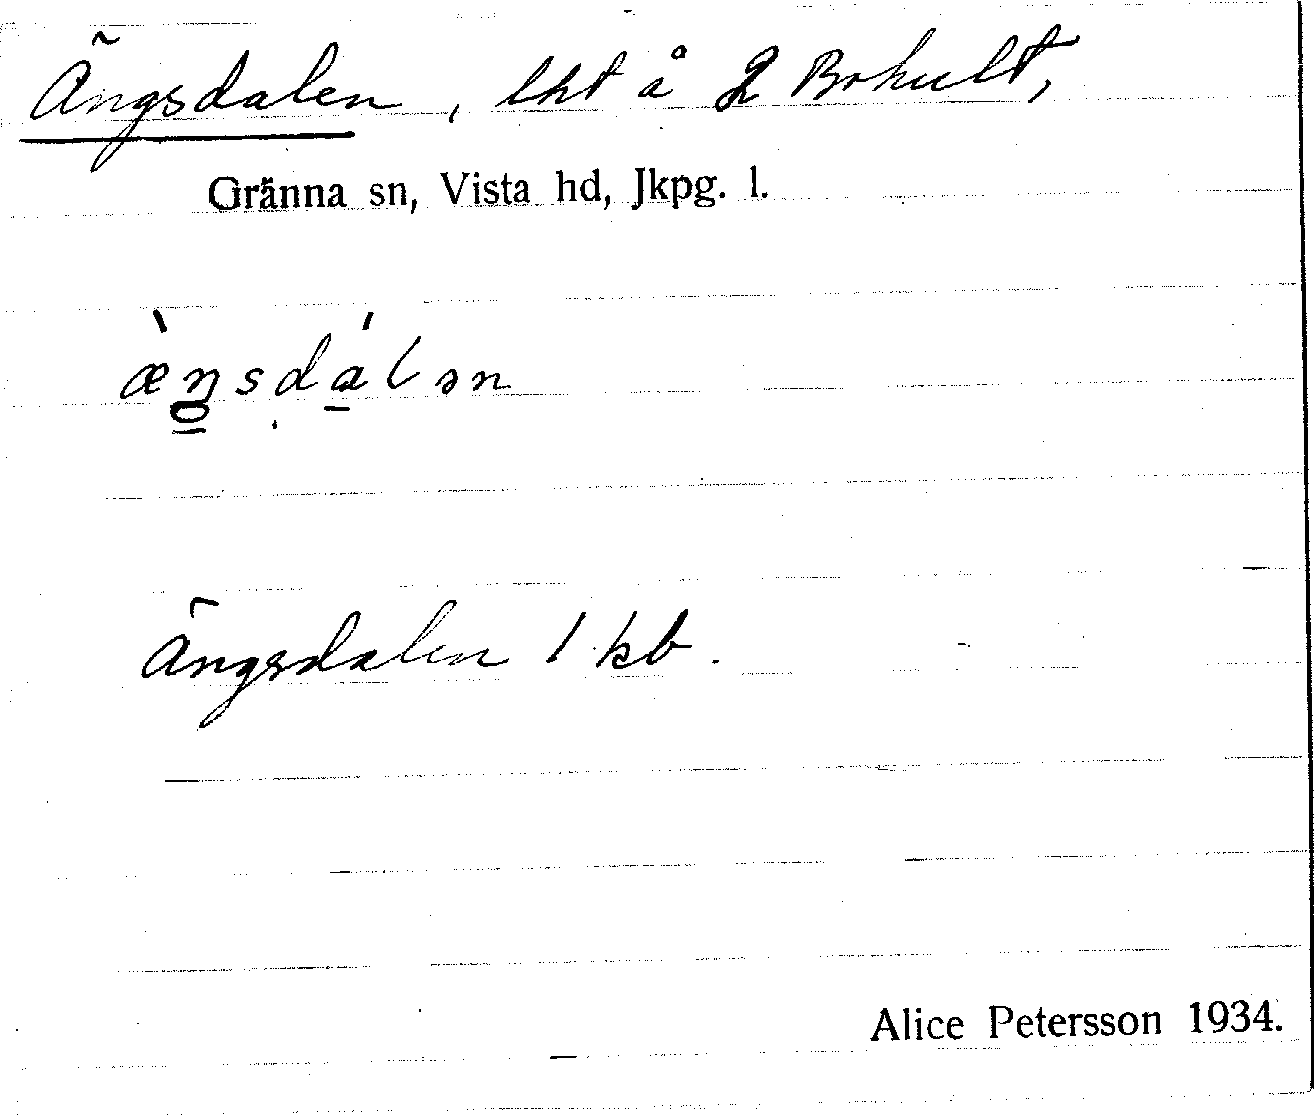 Ängsdalen, lht å 2 Bohult,
Gränna sn, Vista hd, Jkpg. l.
æ̀ŋsdálən
Ängsdalen 1 kb.
Alice Petersson 1934.